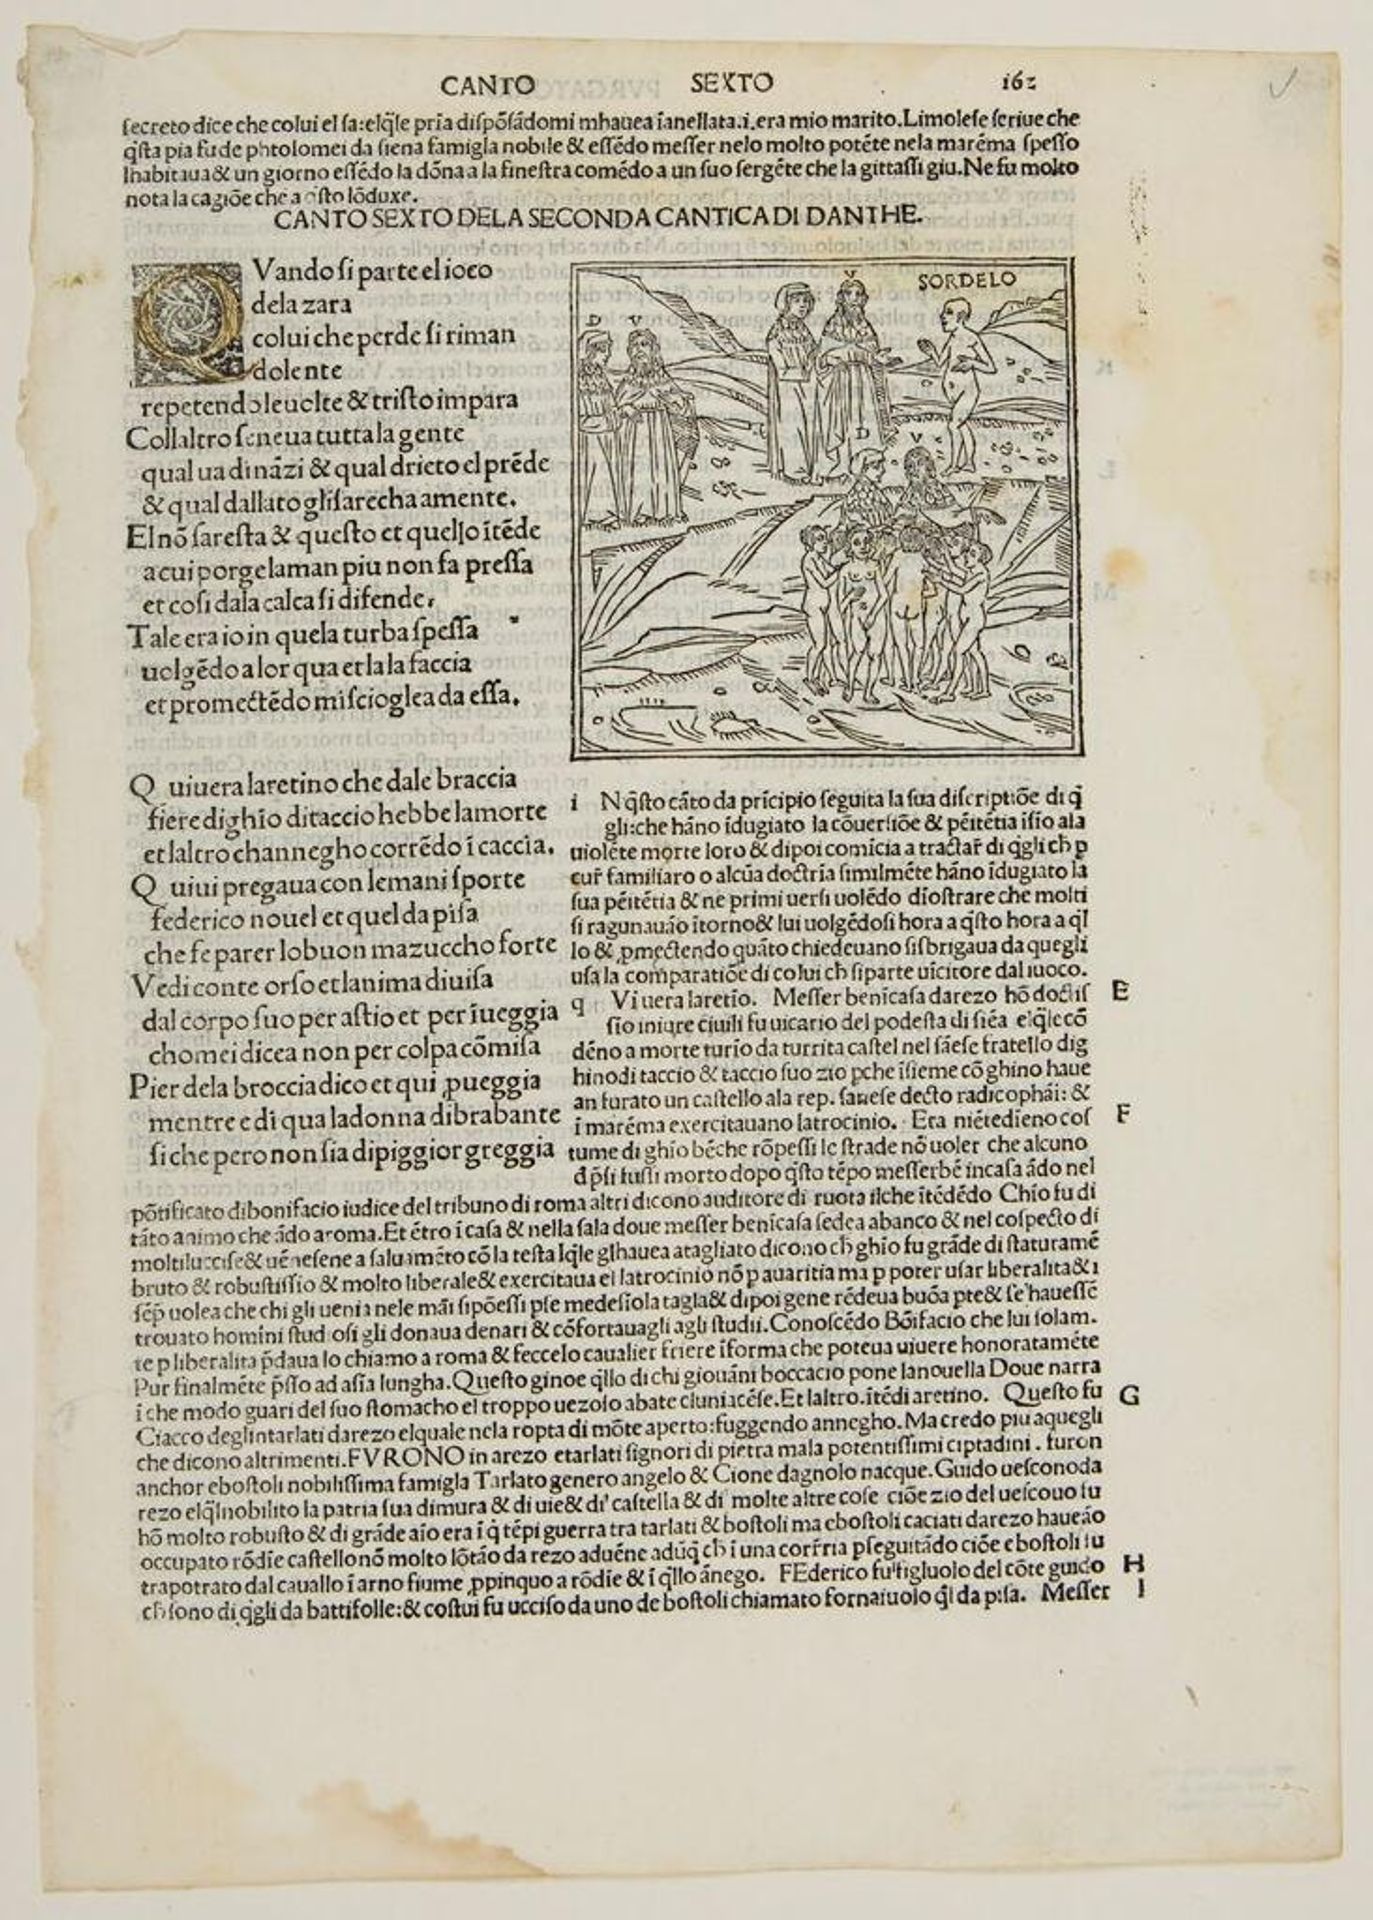 CANTO SEXTO 162
secreto dice che colui el sa:elq̃le pria dispõsãdomi mhauea ianellata.i.era mio marito.Limolese scriue che
q̃sta pia fu de phtolomei da siena famigla nobile & essẽdo messer nelo molto potẽte nela marẽma spesso
lhabitaua & un giorno essẽdo la dõna a la finestra comẽdo a un suo sergẽte che la gittassi giu.Ne fu molto
nota la cagiõe che a q̃sto lõduxe.
CANTO SEXTO DELA SECONDA CANTICA DI DANTHE.
QVando si parte el ioco
dela zara
colui che perde si riman
dolente
repetendo leuolte & tristo impara
Collaltro seneua tutta la gente
qual ua dinãzi & qual drieto el prẽde
& qual dallato gli sarecha a mente.
El nõ saresta & questo et quello itẽde
a cui porge la man piu non fa pressa
et cosi dala calca si difende,
Tale era io in quela turba spessa
uolgẽdo a lor qua et la la faccia
et promectẽdo mi scioglea da essa.
D V
D V
SORDELO
D V
Q uiuera laretino che dale braccia
fiere di ghĩo di taccio hebbe la morte
et laltro channegho corrẽdo ĩ caccia.
Q uiui pregaua con le mani sporte
federico nouel et quel da pisa
che fe parer lo buon mazuccho forte
Vedi conte orso et lanima diuisa
dal corpo suo per astio et per ĩueggia
chomei dicea non per colpa cõmisa
Pier dela broccia dico et qui ꝓueggia
mentre e di qua la donna di brabante
si che pero non sia di piggior greggia
i Nq̃sto cãto da prĩcipio seguita la sua discriptiõe di q̃
gli:che hãno ĩdugiato la cõuersiõe & pẽitẽtia ĩsio ala
uiolẽte morte loro & dipoi comĩcia a tractar̃ di q̃gli ch̃ p
cur̃ familiaro o alcũa doctrĩa similmẽte hãno ĩdugiato la
sua pẽitẽtia & ne primi uersi uolẽdo diostrare che molti
si ragunauão ĩtorno & lui uolgẽdosi hora a q̃sto hora a q̃l
lo & ꝓmectendo quãto chiedeuano sisbrigaua da quegli
usa la comparatiõe di colui ch̃ si parte uĩcitore dal iuoco.
q Vi uera laretio. Messer benĩcasa da rezo hõ doctis E
sio iniure ciuili fu uicario del podesta di siẽa elq̃le cõ
dẽno a morte turio da turrita castel nel sãese fratello di g
hino di taccio & taccio suo zio pche ĩsieme cõ ghino haue
an furato un castello ala rep. sanese decto radicophãi: &
ĩ marẽma exercitauano latrocinio. Era niẽtedieno cos F
tume di ghĩo bẽche rõpessi le strade nõ uoler che alcuno
d p̃si fussi morto dopo q̃sto tẽpo messer bẽ incasa ãdo nel
põtificato di bonifacio iudice del tribuno di roma altri dicono auditore di ruota ilche ĩtẽdẽdo Ghĩo fu di
tãto animo che ãdo a roma.Et ẽtro ĩ casa & nella sala doue messer benĩcasa sedea a banco & nel cospecto di
molti luccise & uẽnesene a saluamẽto cõ la testa lq̃le gl hauea a tagliato dicono ch̃ ghĩo fu grãde di statura mẽ
bruto & robustissio & molto liberale & exercitaua el latrocinio nõ p auaritia ma p poter usar liberalita & ĩ
sẽp̃ uolea che chi gli uenia nele mãi si põessi pse medesĩo la tagla & dipoi gene rẽdeua buõa pte & se hauesse
trouato homini studiosi gli donaua denari & cõfortauagli agli studii.Conoscẽdo Bõifacio che lui solam.
te p liberalita p̃daua lo chiamo a roma & feccelo caualier friere ĩ forma che poteua uiuere honoratamẽte
Pur finalmẽte p̃sso ad asĩa lungha.Questo ginoe q̃llo di chi giouãni boccacio pone la nouella Doue narra
ĩ che modo guari del suo stomacho el troppo uezolo abate cluniacẽse.Et laltro.ĩtẽdi aretino. Questo fu G
Ciacco deglintarlati darezo elquale nela ropta di mõte aperto:fuggendo annegho.Ma credo piu a quegli
che dicono altrimenti.FVRONO in arezo e tarlati signori di pietra mala potentissimi ciptadini. furon
anchor e bostoli nobilissima famigla Tarlato genero angelo & Cione dagnolo nacque.Guido uescono da
rezo elq̃l nobilito la patria sua di mura & di uie & di castella & di molte altre cose ciõe zio del uescouo fu
hõ molto robusto & di grãde aĩo era ĩ q̃ tẽpi guerra tra tarlati & bostoli ma e bostoli caciati darezo haueão
occupato rõdĩe castello nõ molto lõtão da rezo aduẽne adũq̃ ch̃ ĩ una corrĩria pseguitãdo ciõe e bostoli fu
trapotrato dal cauallo ĩ arno fiume ꝓpinquo a rõdĩe & ĩ q̃llo ãnego. FEderico fu figluolo del cõte guido H
ch̃ sono di q̃gli da battifolle:& costui fu ucciso da uno de bostoli chiamato fornaiuolo q̃l da pisa. Messer I